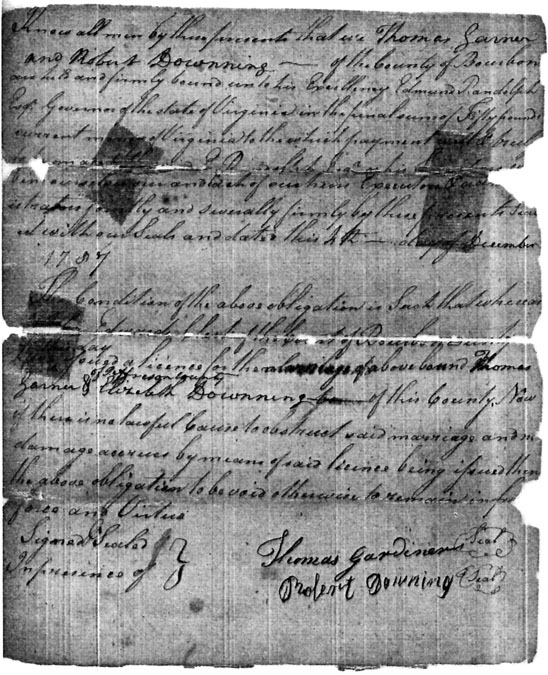 Know all men by these presents that we Thomas Garner
and Robert Downning — of the County of Bourbon
are held and firmly bound unto his Excellency Edmund Randolph
Esqr. Governor of the state of Virginia in the penal sum of Fifty pounds
current money of Virginia to the which payment well & truly
and each of our heirs Executors &
jointly and severally firmly by these presents Seal
with our Seals and dated this 4th — day of December
1787
The Condition of the above obligation is Such that whereas
Clerk of the Court of Bourbon County
day
issued a licence for the marriage of above bound Thomas
of Jefferson County
Garner & Elizebeth Downning — of this County. Now
if there is no lawful Cause to obstruct said marriage and no
damage accrues by means of said licence being issued then
the above obligation to be void otherwise to remain in full
force and Virtue
Signed Sealed
In presence of
Thomas Gardiner Seal
Robert Downing Seal